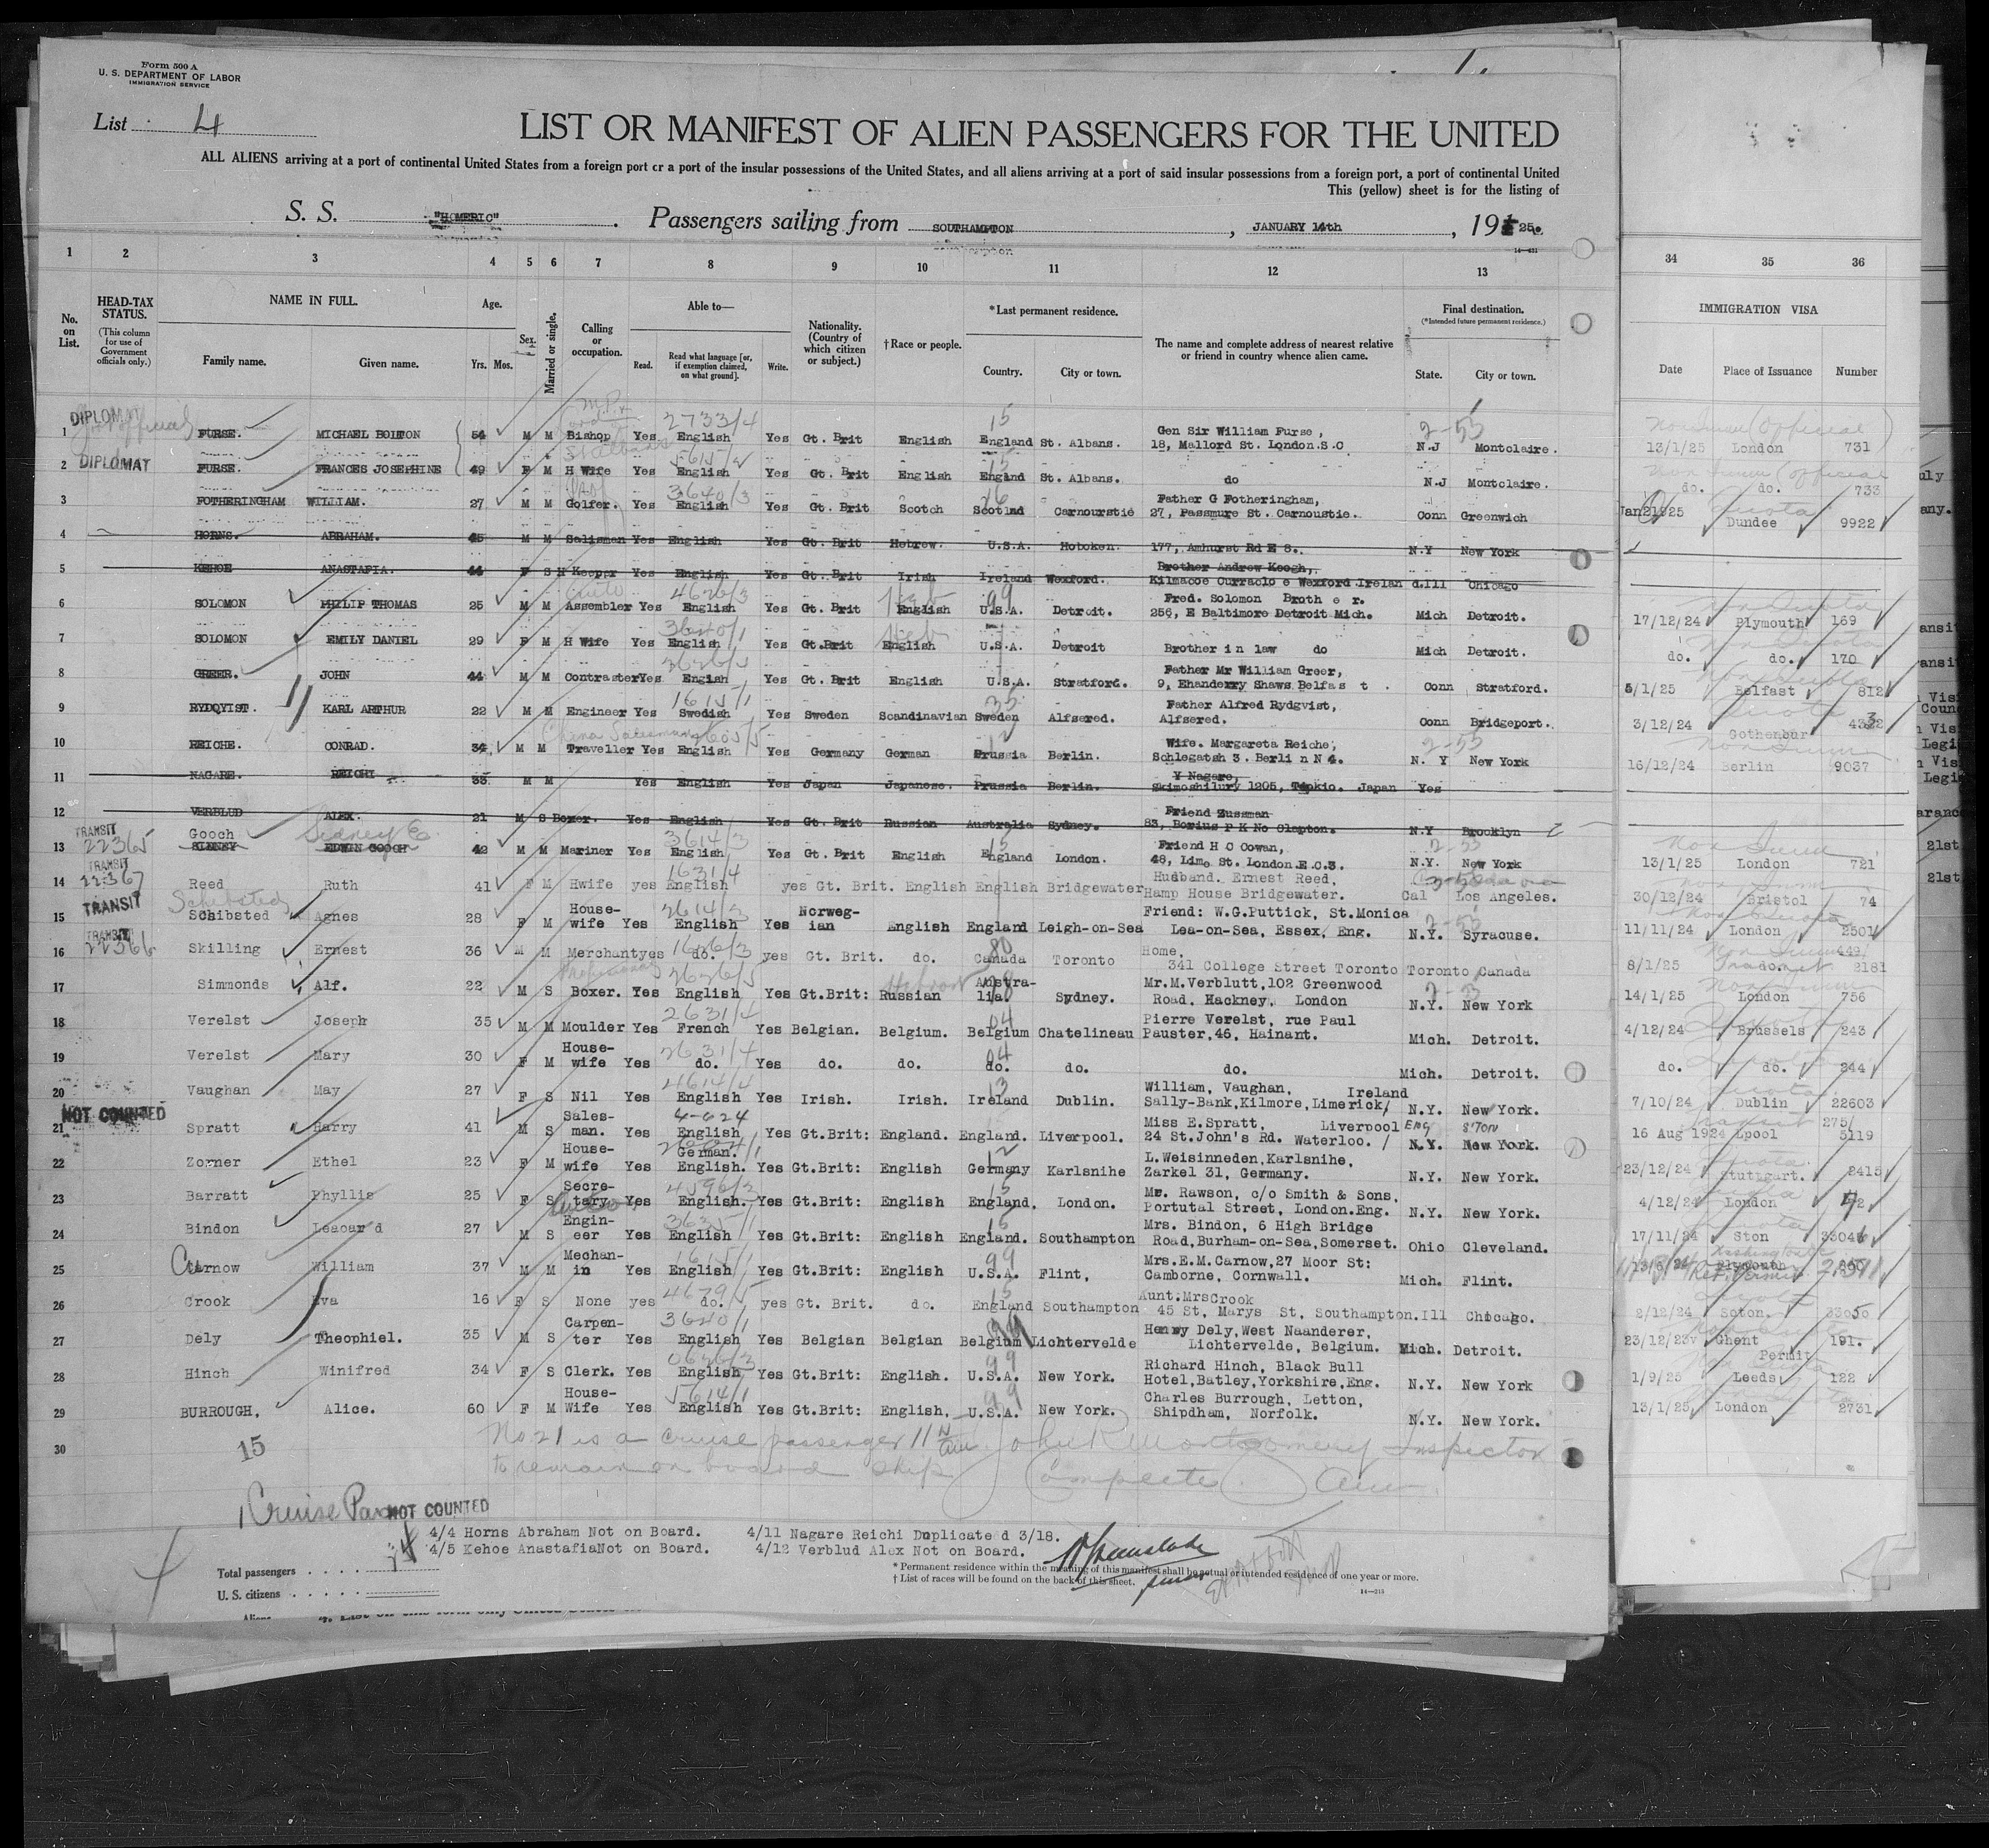 Form 500 A
U. S. DEPARTMENT OF LABOR
IMMIGRATION SERVICE
List 4
LIST OR MANIFEST OF ALIEN PASSENGERS FOR THE UNITED
ALL ALIENS arriving at a port of continental United States from a foreign port or a port of the insular possessions of the United States, and all aliens arriving at a port of said insular possessions from a foreign port, a port of continental United
This (yellow) sheet is for the listing of
S. S. "HOMERIC". Passengers sailing from SOUTHAMPTON, JANUARY 14th, 1925.
1 2 3 4 5 6 7 8 9 10 11 12 13 34 35 36
No. on List. HEAD-TAX STATUS. (This column for use of Government officials only.) NAME IN FULL. Family name. Given name. Age. Yrs. Mos. Sex. Married or single. Calling or occupation. Able to— Read. Read what language [or, if exemption claimed, on what ground]. Write. Nationality. (Country of which citizen or subject.) †Race or people. *Last permanent residence. Country. City or town. The name and complete address of nearest relative or friend in country whence alien came. Final destination. (*Intended future permanent residence.) State. City or town. IMMIGRATION VISA Date Place of Issuance Number
DIPLOMAT 2733/4 15 2-53
1 FURSE. MICHAEL BOLTON 54 M M Bishop Yes English Yes Gt. Brit English England St. Albans. Gen Sir William Furse, 18, Mallord St. London.S.O N.J Montclaire. 13/1/25 London 731
2 DIPLOMAT FURSE. FRANCES JOSEPHINE 49 F M H Wife Yes English Yes Gt. Brit English England St. Albans. do N.J Montclaire. do. do. 733
3 FOTHERINGHAM WILLIAM. 27 M M Golfer. Yes 3640/3 English Yes Gt. Brit Scotch Scotlnd Carnourstie Father G Fotheringham, 27, Passmure St. Carnoustie. Conn Greenwich Quota Dundee 9922
4 HORNS. ABRAHAM. 45 M M Salisman Yes English Yes Gt. Brit Hebrew. U.S.A. Hoboken. 177, Amhurst Rd E 8. N.Y New York
5 KEHOE ANASTAFIA. 44 F S H Keeper Yes English Yes Gt. Brit Irish Ireland Wexford. Brother Andrew Keogh, Kilmacoe Curraclo e Wexford Irelan d. Ill Chicago
6 SOLOMON PHILIP THOMAS 25 M M Auto Assembler Yes 4626/3 English Yes Gt. Brit English U.S.A. Detroit. Fred. Solomon Broth e r. 256, E Baltimore Detroit Mich. Mich Detroit. 17/12/24 Plymouth 169
7 SOLOMON EMILY DANIEL 29 F M H Wife Yes English Yes Gt.Brit English U.S.A. Detroit Brother in law do Mich Detroit. do. do. 170
8 GREER. JOHN 44 M M Contraster Yes Engish Yes Gt. Brit English U.S.A. Stratford. Father Mr William Greer, 9, Ehanderry Shaws Belfas t . Conn Stratford. 5/1/25 Belfast 812
9 RYDQYIST. KARL ARTHUR 22 M M Engineer Yes 1615/1 Swedish Yes Sweden Scandinavian Sweden Alfsered. Father Alfred Rydgvist, Alfsered. Conn Bridgeport. 3/12/24 Quota Gothenbur
10 REICHE. CONRAD. 34 M M Traveller Yes English Yes Germany German Prussia Berlin. Wife. Margareta Reiche, Schlegatsh 3. Berli n N 4. N. Y New York 16/12/24 Berlin 9037
11 NAGARE. REICHI 33 M M Yes English Yes Japan Japanese. Prussia Berlin. Y Nagare, Skimoshilury 1205, Tapkio. Japan Yes
12 VERBLUD ALEX. 21 M S Boxer. Yes English Yes Gt. Brit Russian Australia Sydney. Friend Zussman 83, Borius P K No Clapton. N.Y Brooklyn
TRANSIT Gooch Sidney E.
13 22365 SIDNEY EDWIN GOOCH 42 M M Mariner Yes 3614/3 English Yes Gt. Brit English England London. Friend H C Cowan, 48, Lime St. London.E.C.3. N.Y. New York 13/1/25 London 721
TRANSIT
14 22367 Reed Ruth 41 F M Hwife yes 1631/4 English yes Gt. Brit. English English Bridgewater Husband. Ernest Reed, Hamp House Bridgewater. Cal Los Angeles. 30/12/24 Bristol 74
15 TRANSIT Schibsted Agnes 28 F M House-wife Yes 2614/3 English Yes Norweg-ian English England Leigh-on-Sea Friend: W.G.Puttick, St.Monica Lea-on-Sea, Essex, Eng. N.Y. Syracuse. 11/11/24 London 2501
TRANSIT
16 22366 Skilling Ernest 36 M M Merchant yes 1626/3 do. yes Gt. Brit. do. Canada Toronto Home, 341 College Street Toronto Toronto Canada 8/1/25 2181
17 Simmonds Alf. 22 M S Boxer. Yes 2626/5 English Yes Gt.Brit: Russian Austra-lia. Sydney. Mr.M.Verblutt,102 Greenwood Road, Hackney, London N.Y. New York 14/1/25 London 756
18 Verelst Joseph 35 M M Moulder Yes 2631/4 French Yes Belgian. Belgium. Belgium Chatelineau Pierre Verelst, rue Paul Pauster,46, Hainant. Mich. Detroit. 4/12/24 Brussels 243
19 Verelst Mary 30 F M House-wife Yes 2631/4 do. Yes do. do. do. do. do. Mich. Detroit. do. do. 244
20 Vaughan May 27 F S Nil Yes 4614/4 English Yes Irish. Irish. Ireland Dublin. William, Vaughan, Ireland Sally-Bank,Kilmore,Limerick, N.Y. New York. 7/10/24 Dublin 22603
NOT COUNTED
21 Spratt Harry 41 M S Sales-man. Yes 4-624 English Yes Gt.Brit: England. England. Liverpool. Miss E.Spratt, Liverpool 24 St.John's Rd. Waterloo. ENG S'TON N.Y. New York. 16 Aug 1924 Lpool 5119
22 Zorner Ethel 23 F M House-wife Yes German. English. Yes Gt.Brit: English Germany Karlsnihe L.Weisinneden,Karlsnihe, Zarkel 31, Germany. N.Y. New York. 23/12/24 Stuttgart. 2415
23 Barratt Phyllis 25 F S Secre-tary Yes 4596/2 English. Yes Gt.Brit: English England, London. Mr. Rawson, c/o Smith & Sons, Portutal Street, London.Eng. N.Y. New York. 4/12/24 London
24 Bindon Leaoard 27 M S Engin-eer Yes 3635/1 English Yes Gt.Brit: English England. Southampton Mrs. Bindon, 6 High Bridge Road,Burham-on-Sea,Somerset. Ohio Cleveland. 17/11/24 Ston
25 Curnow William 37 M M Mechan-in Yes 1615/1 English Yes Gt.Brit: English U.S.A. Flint, Mrs.E.M.Carnow,27 Moor St: Camborne, Cornwall. Mich. Flint. Plymouth
26 Crook Eva 16 F S None yes 4679/5 do. yes Gt. Brit. do. England Southampton Aunt:Mrs Crook 45 St. Marys St, Southampton. Ill Chicago. 2/12/24 Soton. 33050
27 Dely Theophiel. 35 M S Carpen-ter Yes 3640/1 English Yes Belgian Belgian Belgium Lichtervelde Henry Dely,West Naanderer, Lichtervelde, Belgium. Mich. Detroit. 23/12/23 Ghent 191.
28 Hinch Winifred 34 F S Clerk. Yes 0626/3 English Yes Gt.Brit: English. U.S.A. New York. Richard Hinch, Black Bull Hotel,Batley,Yorkshire,Eng. N.Y. New York 1/9/25 Permit Leeds 122
29 BURROUGH, Alice. 60 F M House-Wife Yes 5614/1 English Yes Gt.Brit: English. U.S.A. New York. Charles Burrough, Letton, Shipdham, Norfolk. N.Y. New York. 13/1/25 London 2731
30 15 No. 21 is a cruise passenger John R Montgomery Inspector
to remain on board ship Complete
1 Cruise Pass NOT COUNTED
4/4 Horns Abraham Not on Board. 4/11 Nagare Reichi Duplicate d 3/18.
4/5 Kehoe Anastafia Not on Board. 4/12 Verblud Alex Not on Board.
* Permanent residence within the meaning of this manifest shall be actual or intended residence of one year or more.
† List of races will be found on the back of this sheet.
14—213
Total passengers
U. S. citizens
Aliens